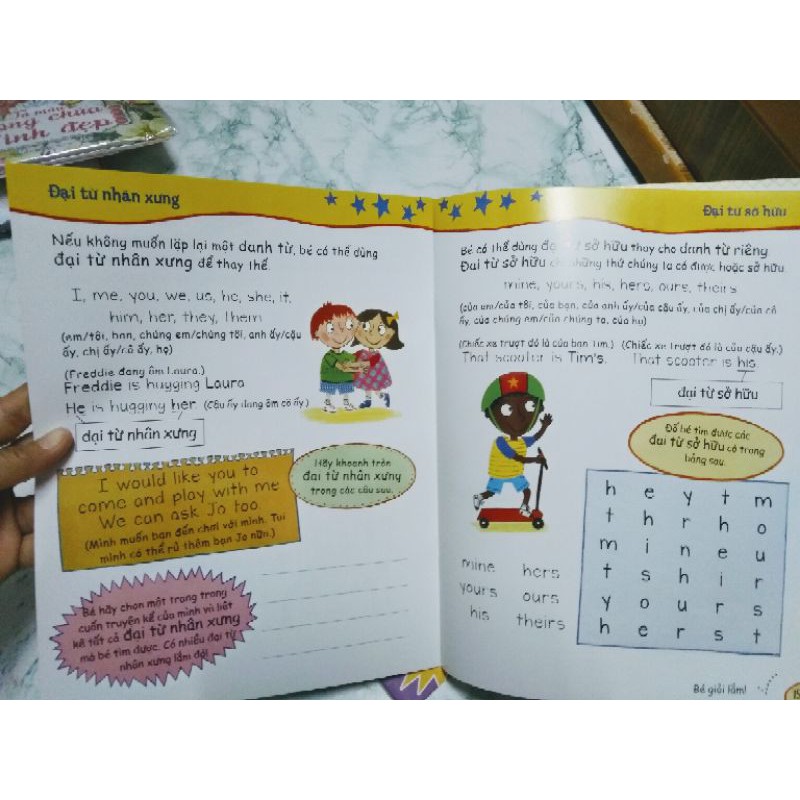 ong chúa
inh đẹp
Đại từ nhân xưng
Nếu không muốn lặp lại một danh từ, bé có thể dùng
đại từ nhân xưng để thay thế.
I, me, you, we, us, he, she, it,
him, her, they, them
(em/tôi, bạn, chúng em/chúng tôi, anh ấy/cậu
ấy, chị ấy/cô ấy, họ)
(Freddie đang ôm Laura.)
Freddie is hugging Laura
He is hugging her. (Cậu ấy đang ôm cô ấy.)
đại từ nhân xưng
I would like you to
come and play with me
We can ask Jo too.
(Mình muốn bạn đến chơi với mình. Tụi
mình có thể rủ thêm bạn Jo nữa.)
Hãy khoanh tròn
đại từ nhân xưng
trong các câu sau.
Bé hãy chọn một trang trong
cuốn truyện kể của mình và liệt
kê tất cả đại từ nhân xưng
mà bé tìm được. Có nhiều đại từ
nhân xưng lắm đó!
Đại từ sở hữu
Bé có thể dùng đại từ sở hữu thay cho danh từ riêng
Đại từ sở hữu những thứ chúng ta có được hoặc sở hữu
mine, yours, his, hers, ours, theirs
(của em/của tôi, của bạn, của anh ấy/của cậu ấy, của chị ấy/của cô
ấy, của chúng em/của chúng ta, của họ)
(Chiếc xe trượt đó là của bạn Tim.) (Chiếc xe trượt đó là của cậu ấy.)
That scooter is Tim's. That scooter is his.
đại từ sở hữu
Đố bé tìm được các
đại từ sở hữu có trong
bảng sau.
h e y t m
t h r h o
m i n e u
t s h i r
y o u r s
h e r s t
mine hers
yours ours
his theirs
Bé giỏi lắm!